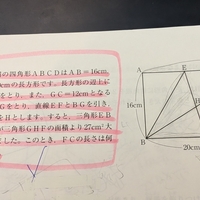 の四角形ABCDはAB=16cm,
cmの長方形です。長方形の辺上に
をとり、また、GC=12cmとなる
Gをとり、直線EFとBGを引き,
をHとします。すると、三角形EB
が三角形GHFの面積より27cm²大
ました。このとき、FCの長さは何
A
E
16cm
H
B
20cm